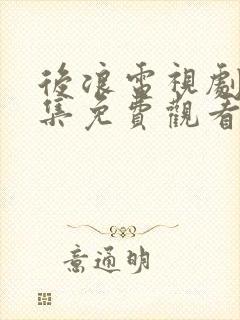 後浪電視劇
集免費觀看
意通明